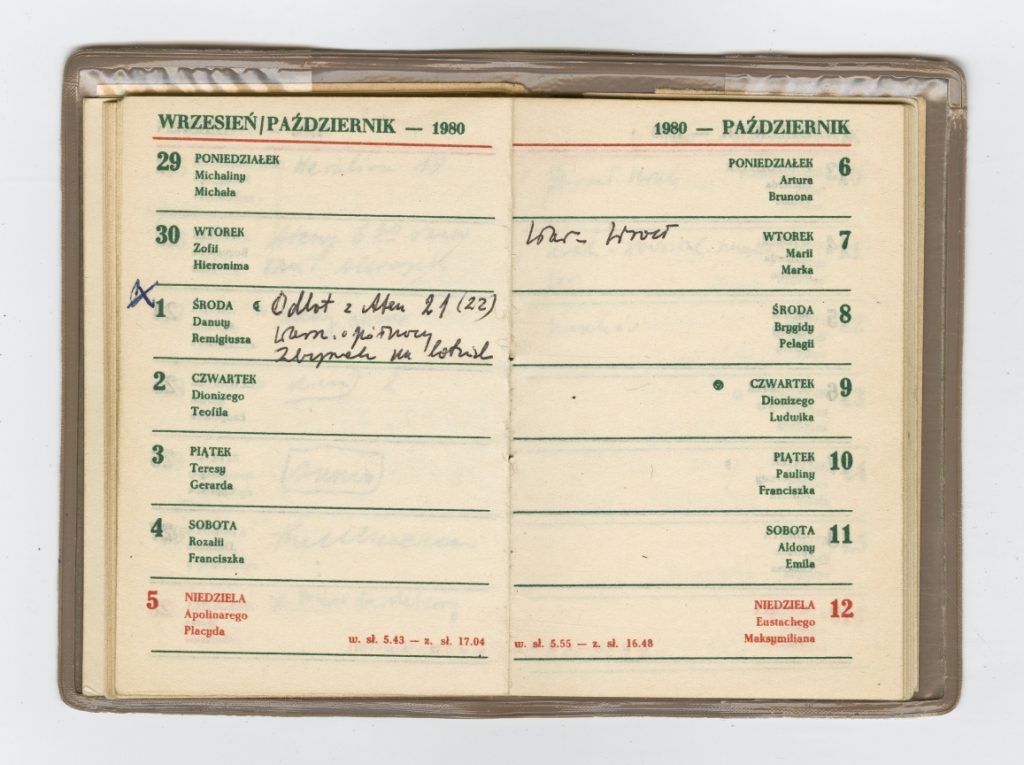 WRZESIEŃ/PAŹDZIERNIK — 1980
29 PONIEDZIAŁEK
Michaliny
Michała
30 WTOREK
Zofii
Hieronima
1 ŚRODA
Danuty
Remigiusza
Odlot z Aten 21 (22)
Warsz. o północy
Zbyszek na lotnisk
2 CZWARTEK
Dionizego
Teofila
3 PIĄTEK
Teresy
Gerarda
4 SOBOTA
Rozalii
Franciszka
5 NIEDZIELA
Apolinarego
Placyda
w. sł. 5.43 — z. sł. 17.04
1980 — PAŹDZIERNIK
PONIEDZIAŁEK 6
Artura
Brunona
WTOREK 7
Marii
Marka
ŚRODA 8
Brygidy
Pelagii
CZWARTEK 9
Dionizego
Ludwika
PIĄTEK 10
Pauliny
Franciszka
SOBOTA 11
Aldony
Emila
NIEDZIELA 12
Eustachego
Maksymiliana
w. sł. 5.55 — z. sł. 16.48